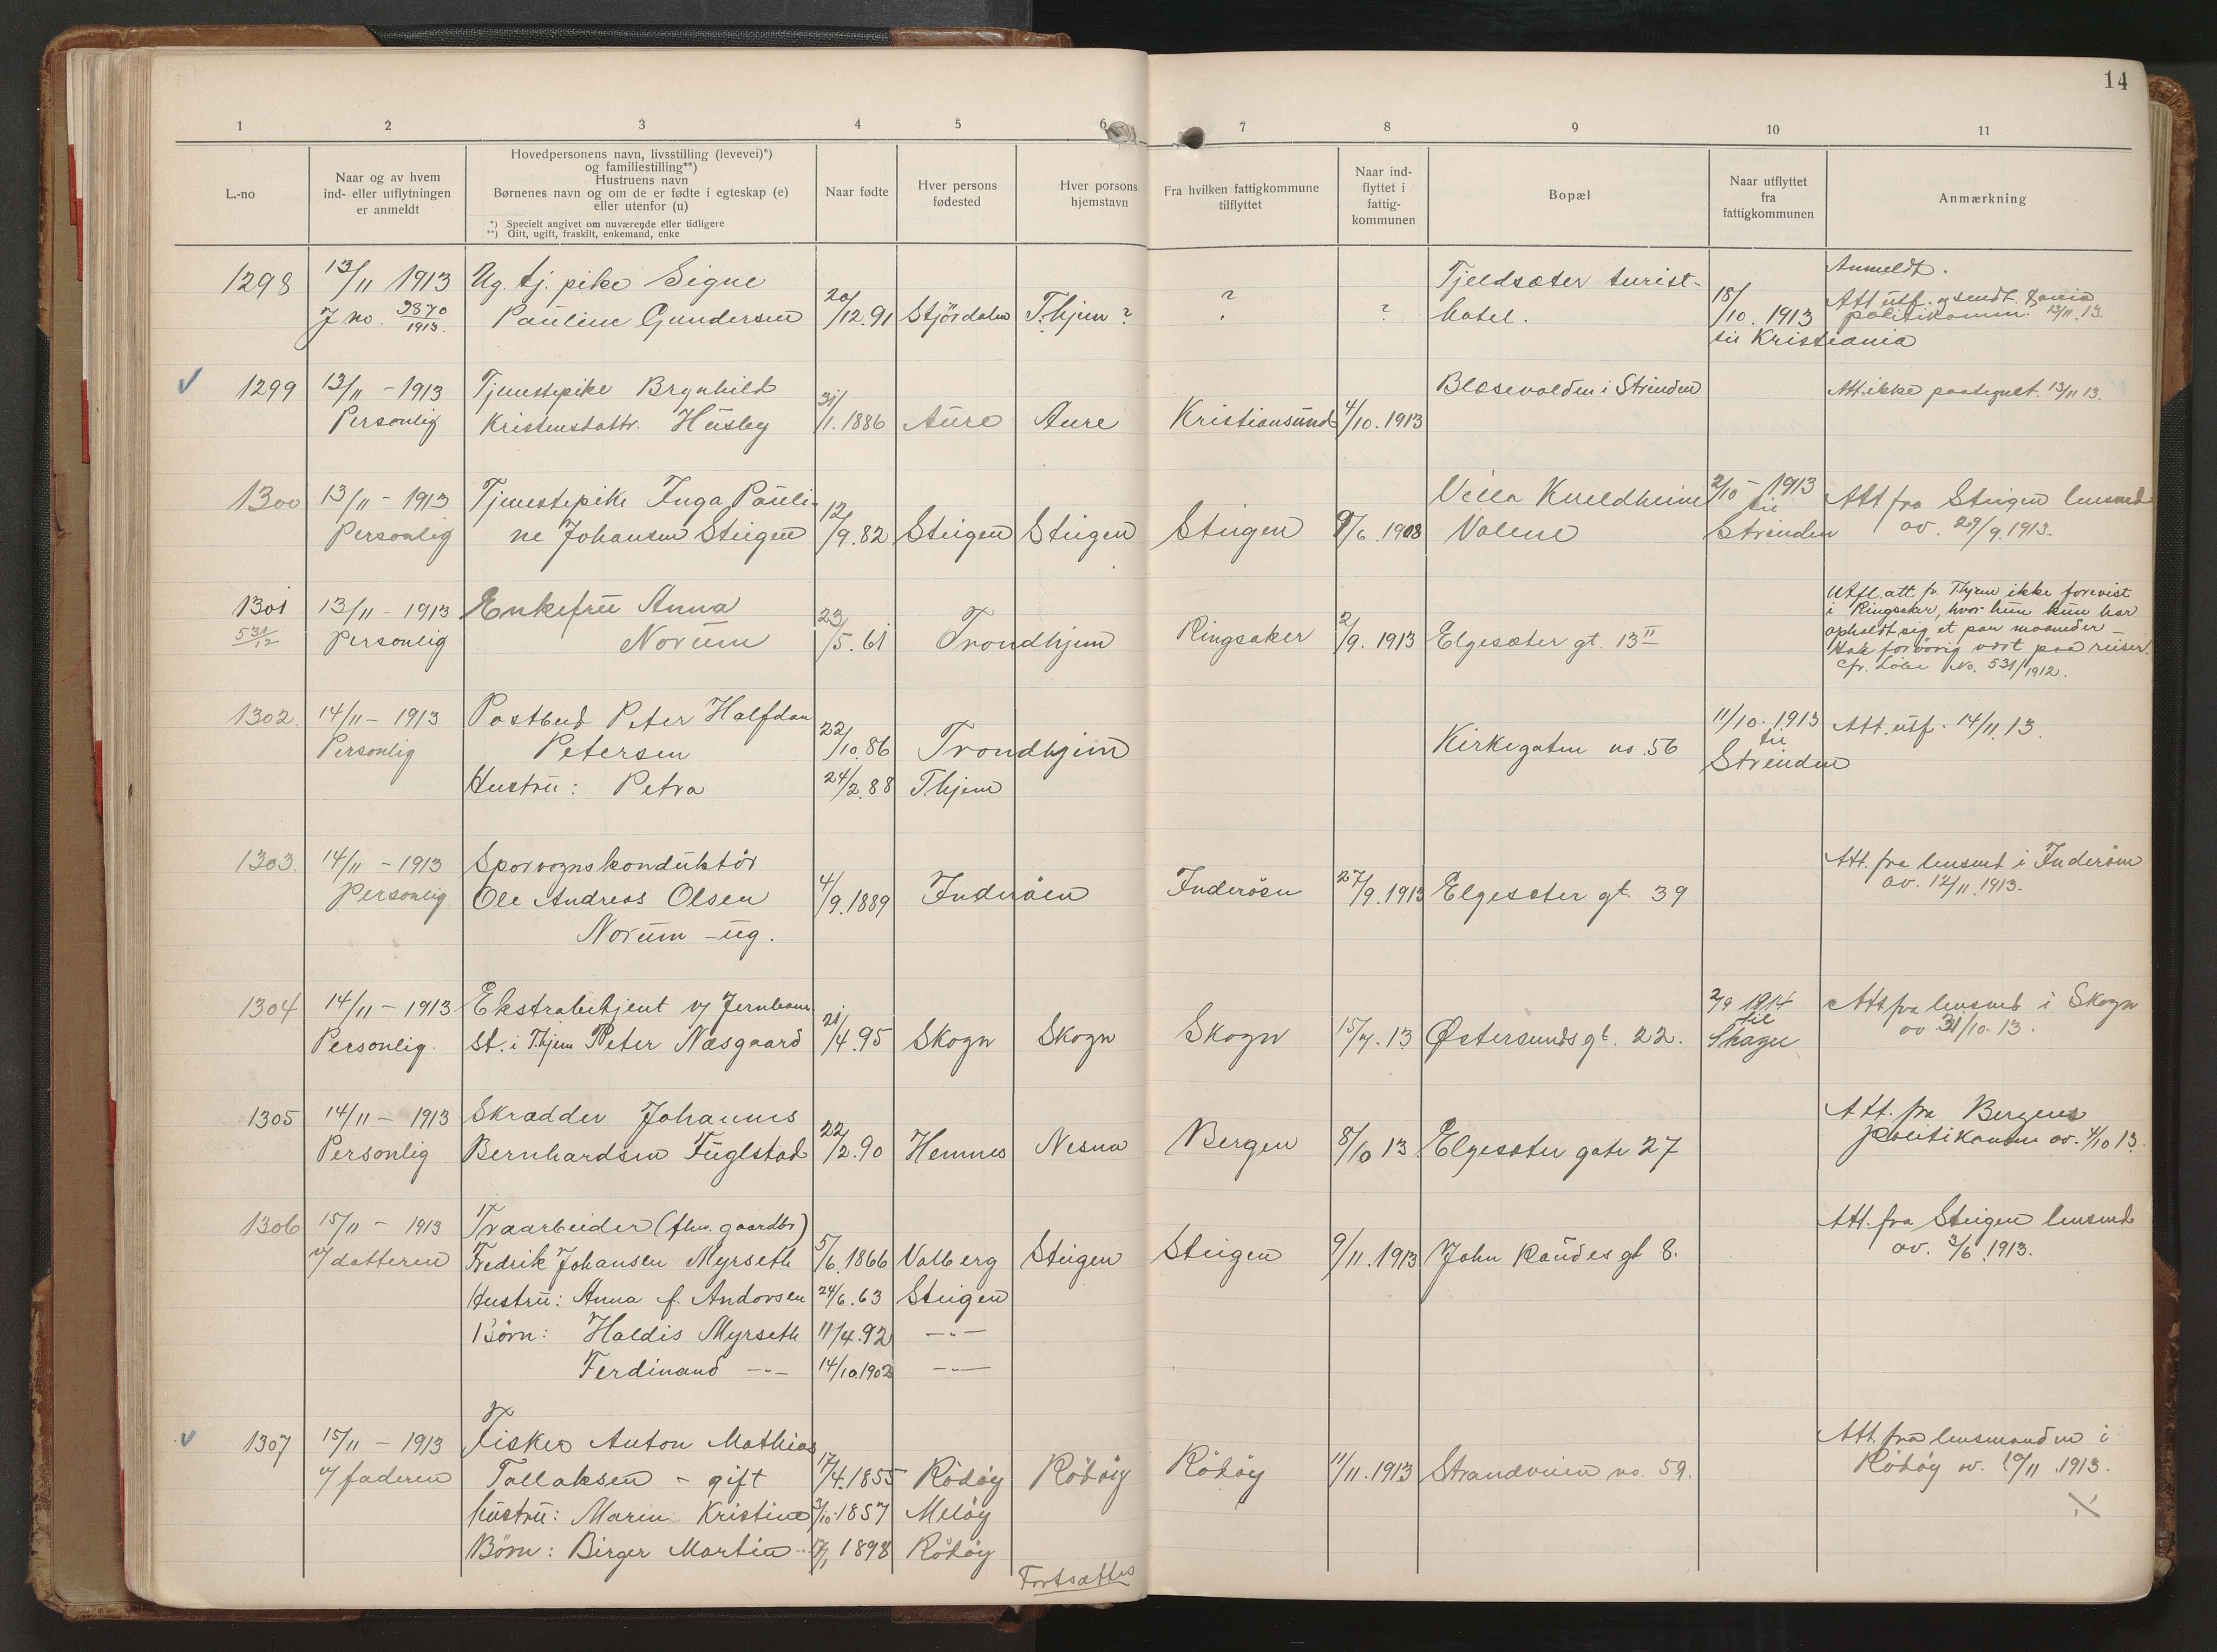 14
1 2 3 4 5 6 7 8 9 10 11
L.-no
Naar og av hvem
ind- eller utflytningen
er anmeldt
Hovedpersonens navn, livsstilling (levevei)*)
og familiestilling**)
Hustruens navn
Børnenes navn og om de er fødte i egteskap (e)
eller utenfor (u)
*) Specielt angivet om nuværende eller tidligere
**) Gift, ugift, fraskilt, enkemand, enke
Naar fødte
Hver persons
fødested
Hver persons
hjemstavn
Fra hvilken fattigkommune
tilflyttet
Naar ind-
flyttet i
fattig-
kommunen
Bopæl
Naar utflyttet
fra
fattigkommunen
Anmærkning
1298 13/11 1913 Ug. tj. pike Signe Tjeldsæter turist- Anmeldt.
J no. 3870/1913. Pauline Gundersen 20/12.91 Stjördalen T.hjem ? ? ? hotel. 18/10. 1913 Att utf. og sendt
til Kristiania politikamm. 13/11.13.
1299 13/11 - 1913 Tjenestepike Brynhild Blæsevolden i Strinden Att ikke paategnet. 13/11 13.
Personlig Kristensdattr. Husby 31/1.1886 Aure Aure Kristiansund 4/10.1913
1300 13/11 - 1913 Tjenestepike Inga Pauli- Villa Kveldheim 2/10 - 1913 Att fra Steigen lensmd
Personlig ne Johansen Steigen 12/9.82 Steigen Steigen Steigen 9/6.1908 Volene til Strinden av. 29/9.1913.
1301 13/11 - 1913 Enkefru Anna Utfl.att. fr. T.hjem ikke forevist
531/12 Personlig Norum 23/5.61 Trondhjem Ringsaker 2/9.1913 Elgesæter gt. 13 II i Ringsaker, hvor hun kun har
opholdt sig et par maaneder -
Har forøvrig vært paa reiser.
Cfr. Löbe No. 531/1912.
1302. 14/11 - 1913 Postbud Peter Halfdan 11/10.1913 Att. utf. 14/11.13.
Personlig Petersen 22/10.86 Trondhjem Kirkegaten no. 56 til Strinden
Hustru: Petra 24/2.88 T.hjem
1303. 14/11 - 1913 Sporvognskonduktör Att. fra lensmd i Inderöen
Personlig Ole Andreas Olsen 4/9.1889 Inderöen Inderöen 27/9.1913 Elgesæter gt. 39 av. 12/11.1913.
Norum - ug.
1304 14/11 - 1913 Ekstrabetjent v/ Jernbane 2/9 1914 Att fra lensmd i Skogn
Personlig. st. i T.hjem Peter Næsgaard 21/4.95 Skogn Skogn Skogn 15/7.13 Østersunds gt. 22. til Skogn av 31/10.13.
1305 14/11 - 1913 Skrædder Johannes Att. fra Bergens
Personlig Bernhardsen Fuglstad 22/2.90 Hemnes Nesna Bergen 8/10 13 Elgesæter gate 27 politikamm av. 4/10 13.
1306 15/11 - 1913 Træarbeider (fhv. gaardbr) Att. fra Steigen lensmd
v/ datteren Fredrik Johansen Myrseth 5/6.1866 Valberg Steigen Steigen 9/11.1913 John Raudes gt 8. av. 3/6.1913.
Hustru: Anna f. Andorsen 24/6.63 Steigen
Börn: Haldis Myrseth 11/4.92 -"-
Ferdinand -"- 14/10.1902 -"-
1307 15/11 - 1913 Fisker Anton Mathias Att. fra lensmanden i
v/ faderen Tollaksen - gift 17/4.1855 Rödöy Rödöy Rödöy 11/11.1913 Strandveien no. 59. Rödöy av. 10/11.1913.
hustru: Maren Kristine 3/10.1857 Melöy
Börn: Birger Martin 1898 Rödöy
Fortsættes